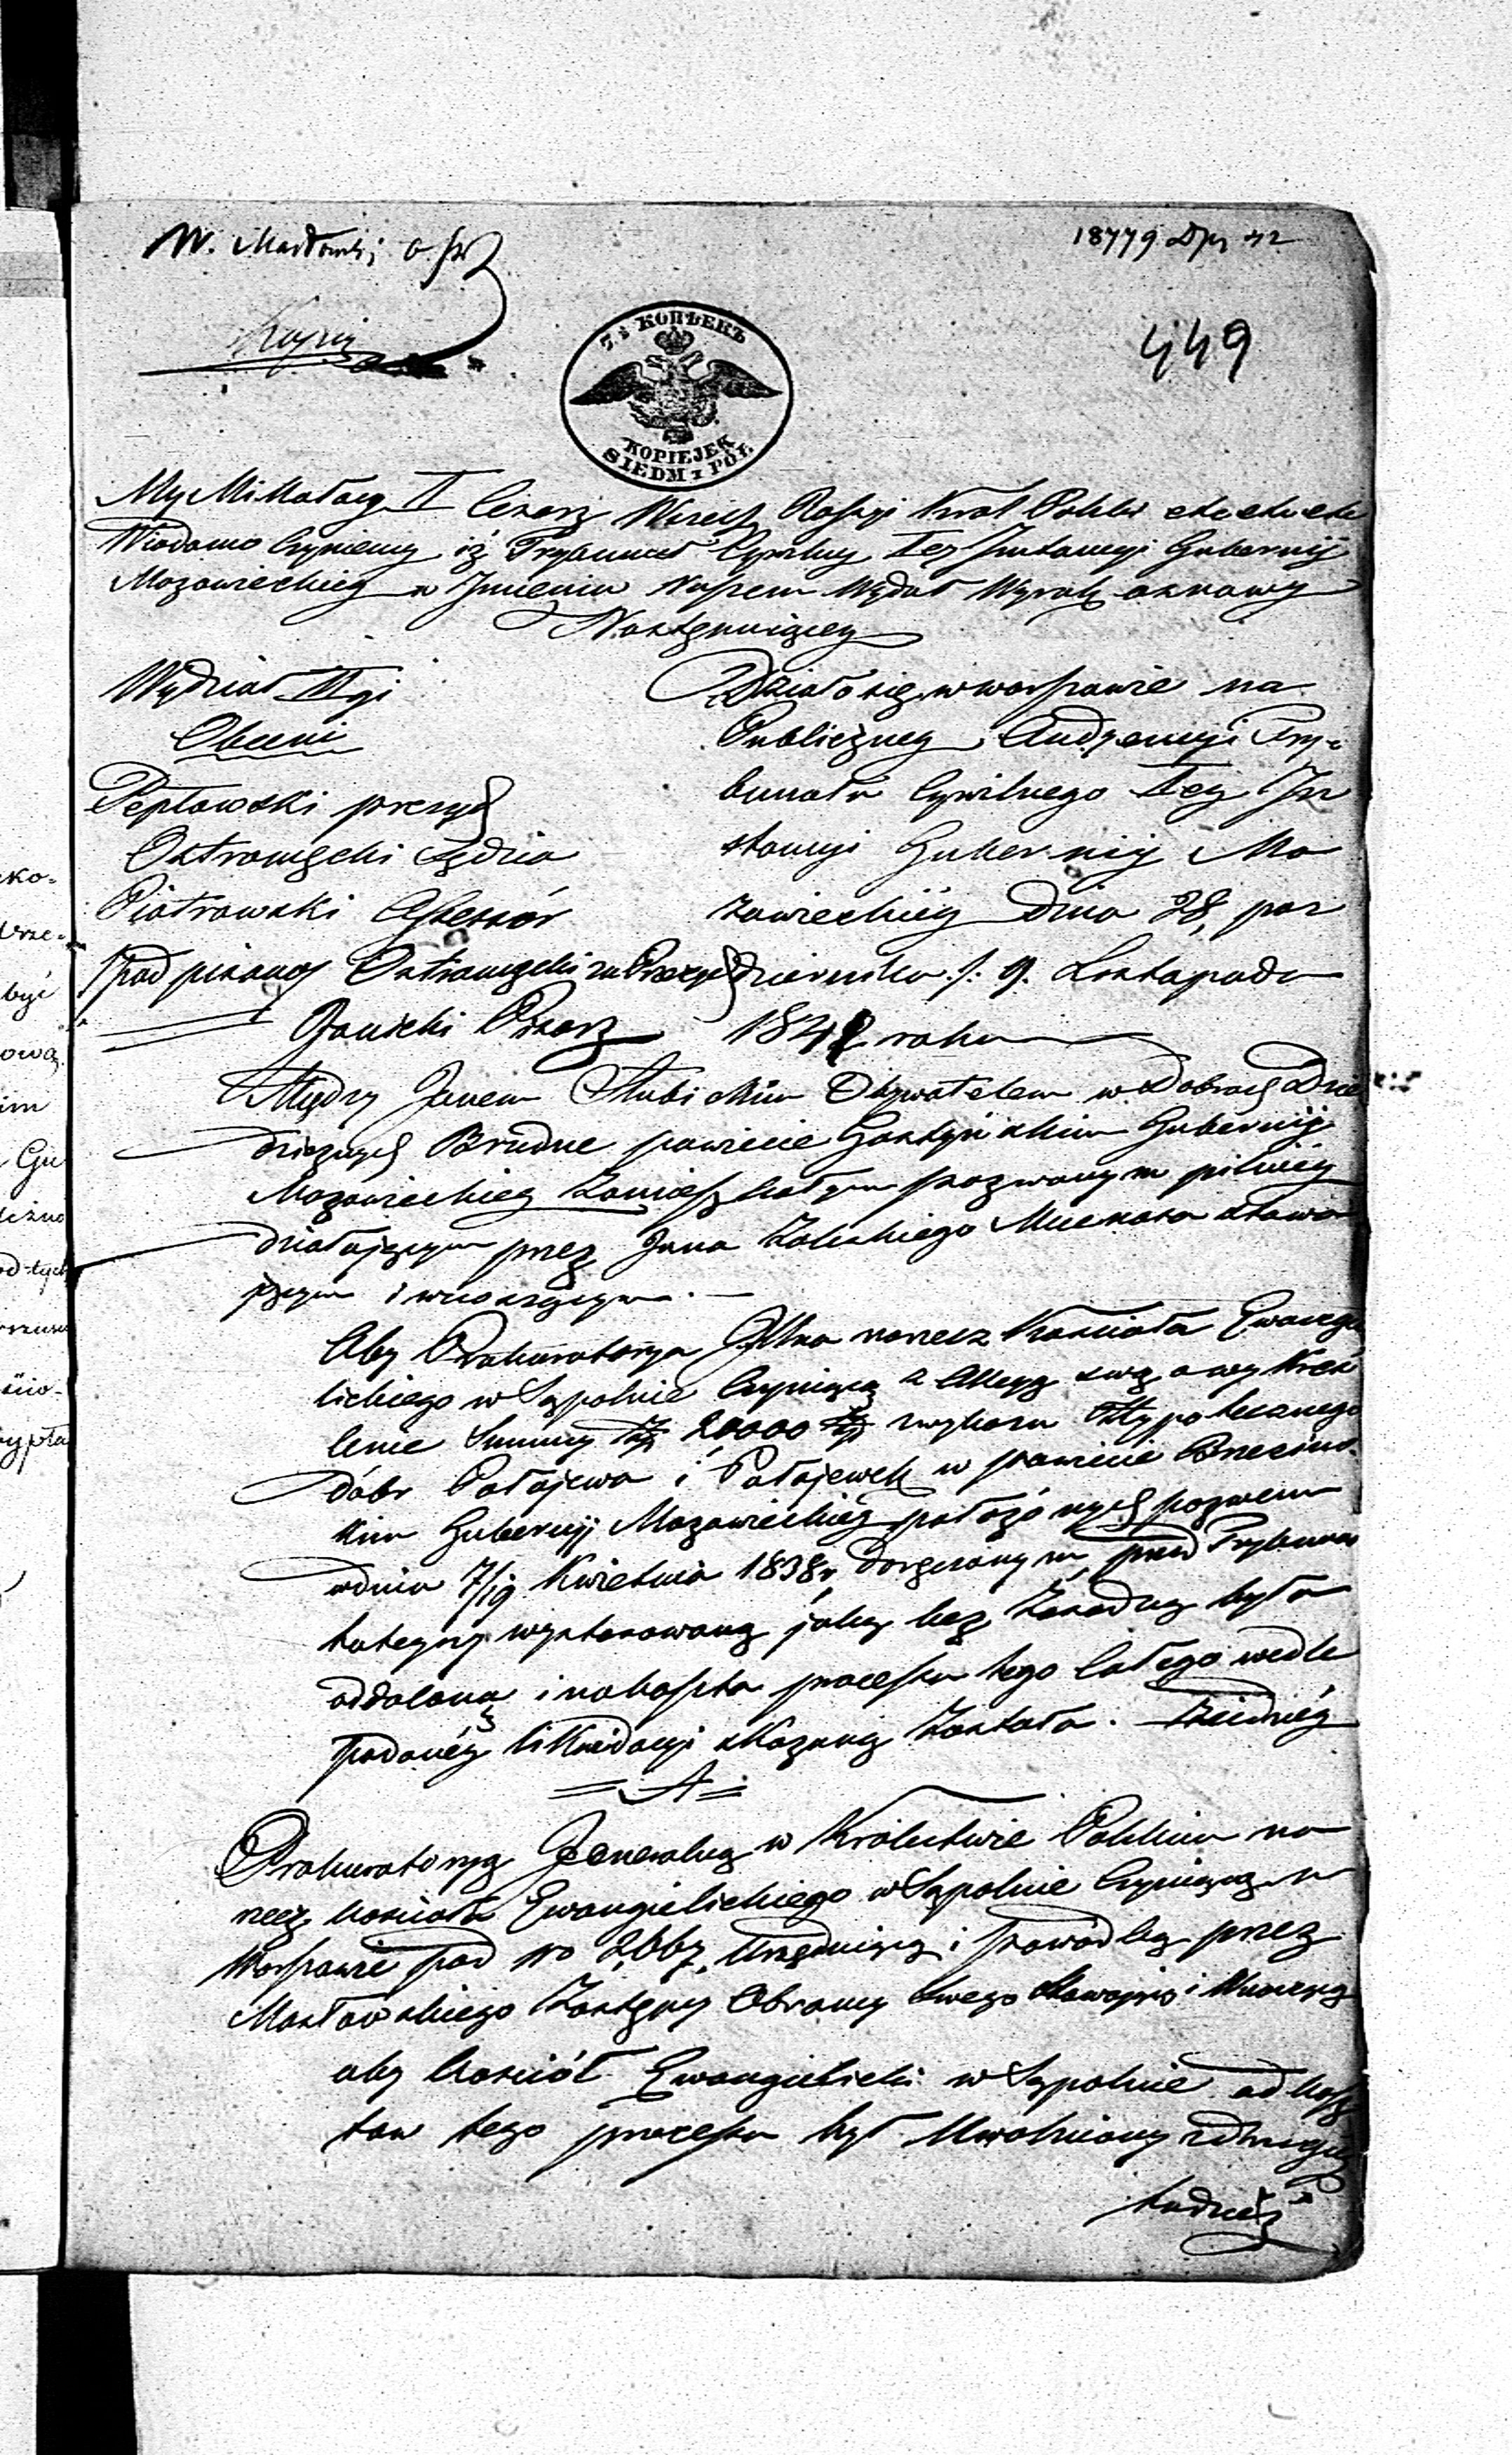 W. Masłowski
18779
Kopia
449
7½ КОПѢЕКЪ
KOPIEJEK
SIEDM i PÓŁ
My Mikołay I Cesarz Wszech Rossyi Król Polski etc etc etc
Wiadomo Czyniemy iż Trybunał Cywilny Iey Instancyi Gubernij
Mazowieckiey w Imieniu Naszem Wydał Wyrok osnowy
Następuiącey
Wydział IIgi
Obecni
Pepłowski prezyd
Ostromęcki Sędzia
Piotrowski Assessór
podpisany Ostromęcki za Prezyd
Janicki Pisarz
Działo się w warszawie na
Publiczney Audyencyi Try-
bunału Cywilnego Iey In
stancyi Gubernij Ma
zowieckiéy Dnia 28, paz
dziernika /: 9. Listopada
1842 roku
Między Janem Słubickim Obywatelem w Dobrach Dzie
dzicznych Brudne powiecie Gostyńskim Gubernij
Mazowieckiey Zamieszkałym pozwanym pilniéy
działaiącym przez Jana Zaleskiego Mecenasa stawa
jącym i wnoszącym. —
Aby Prokuratorya Jlna narzecz Kościoła Ewange
lickiego w Sępolnie Czyniąca z Akcyą swą o wykreś
lenie Summy 20000 z wykazu Hypotecznego
dóbr Patajewa i Patajewek w powiecie Brzezińs
kim Gubernij Mazowieckiéy położonych pozwem
w dniu 7/19 Kwietnia 1838 r, doręczonym, przed Trybunał
tuteyszy wystosowaną jako bez zasadną była
oddaloną i na koszta processu tego całego wedle
podanéy likwidacyi skazaną została. —
= A =
Prokuratoryą Jeneralną w Królestwie Polskim na
rzecz kościoła Ewangielickiego w Sępolnie Czyniącą w
Warszawie pod No Urzęduiącą i powódką przez
Masłowskiego Zastępcę Obrońcy swego stawaiącą i Wnoszącą
aby kościół Ewangielicki w Sępolnie od kosz
tow tego processu był Uwolniony z drugiey